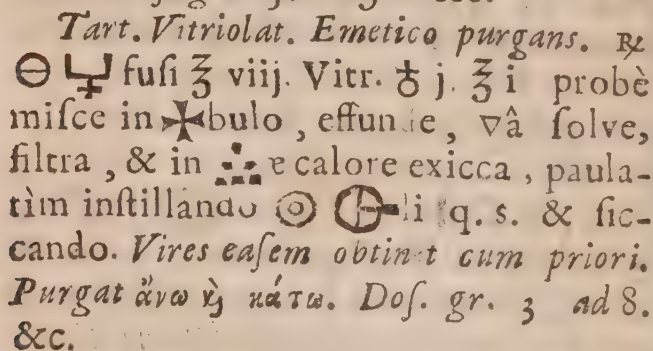 Tart. Vitriolat. Emetico purgans. ℞
🜔 🜿 fuſi ℥ viij. Vitr. ♁ j. ℥ i probè
miſce in ✠bulo, effunde, ▽â ſolve,
filtra, & in ⛬e calore exicca, paula-
tìm inſtillando ☉ li q. s. & ſic-
cando. Vires eaſem obtinet cum priori.
Purgat ἄνω ϗ̀ κάτω. Doſ. gr. 3 ad 8.
&c.